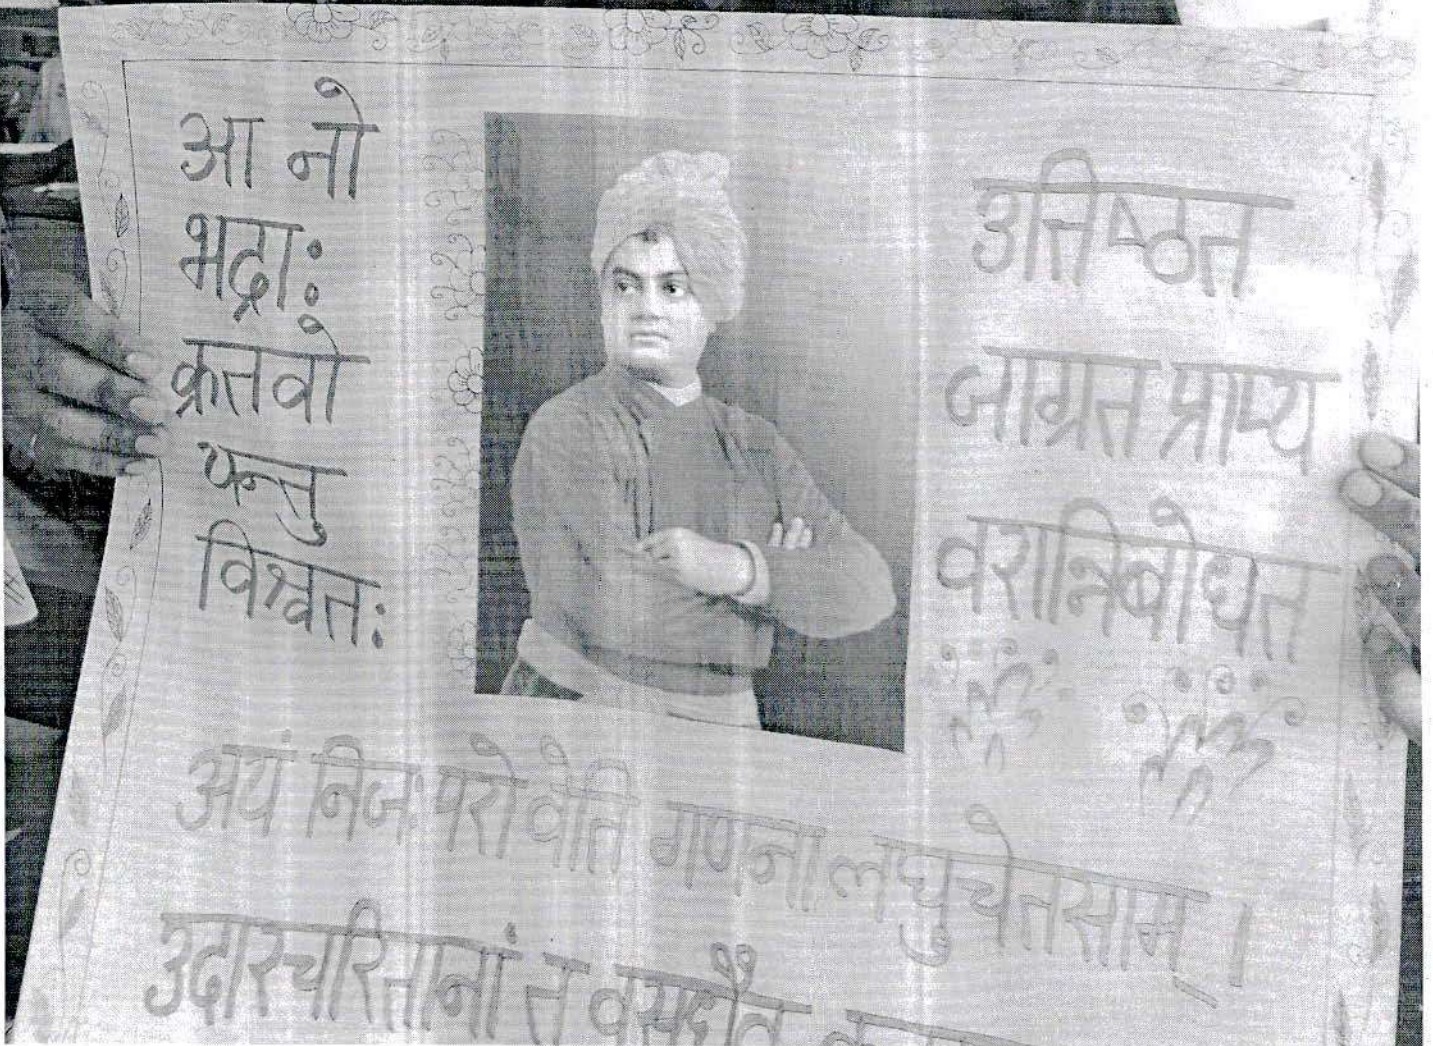 आ नो
भद्राः
क्रतवो
यन्तु
विश्वतः
उत्तिष्ठत
जाग्रत प्राप्य
वरान्निबोधत
अयं निजः परो वेति गणना लघुचेतसाम् ।
उदारचरितानां